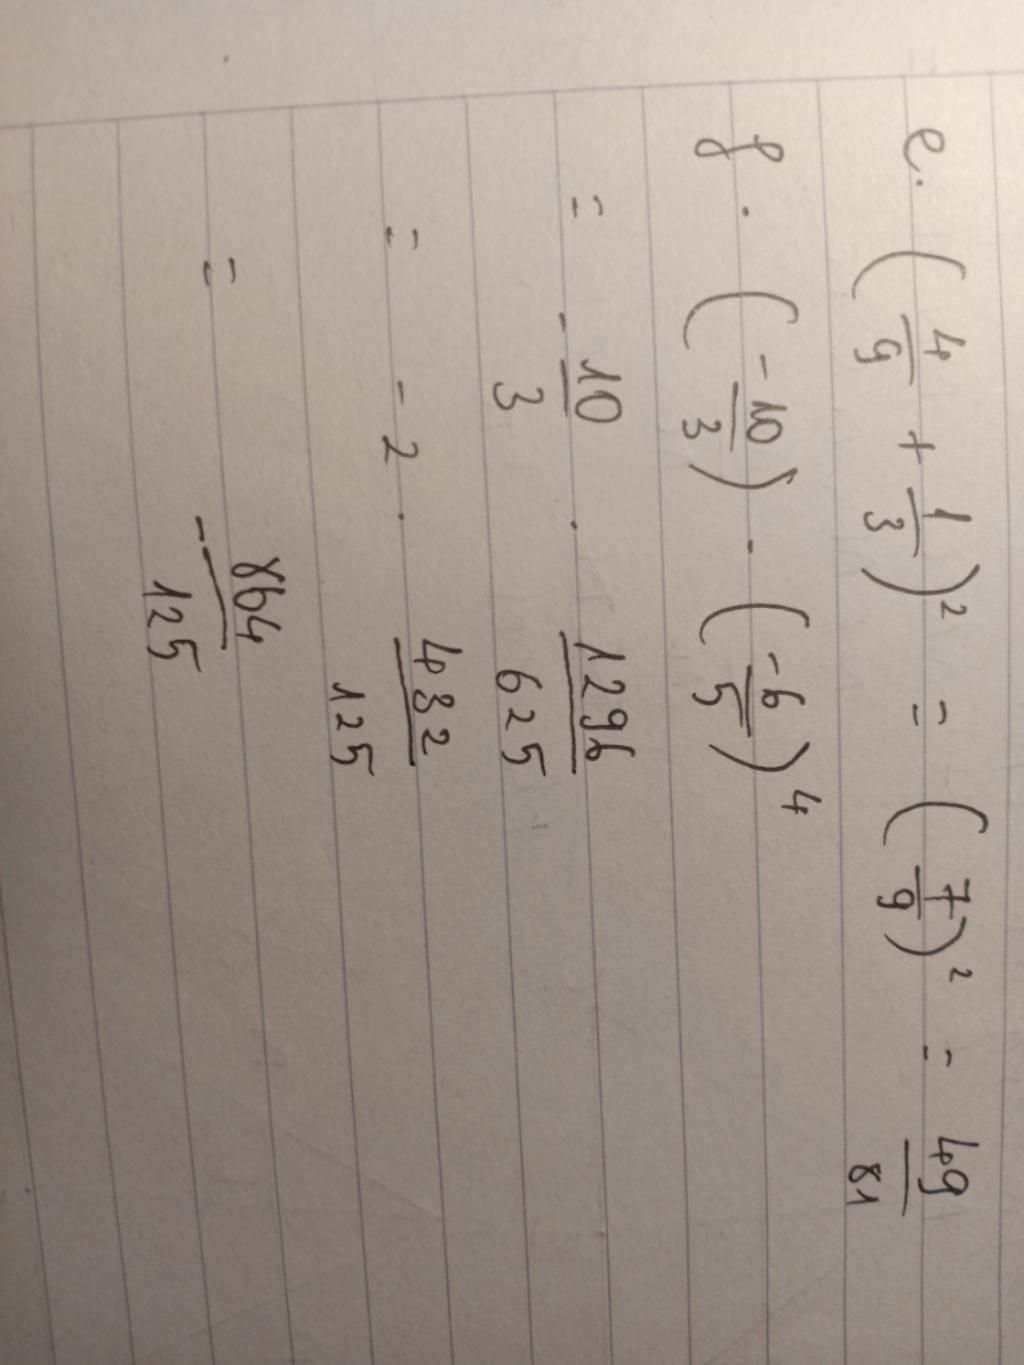 e. (4/9 + 1/3)² = (7/9)² = 49/81
f. (-10/3) · (-6/5)⁴
= -10/3 · 1296/625
= -2 · 432/125
= -864/125